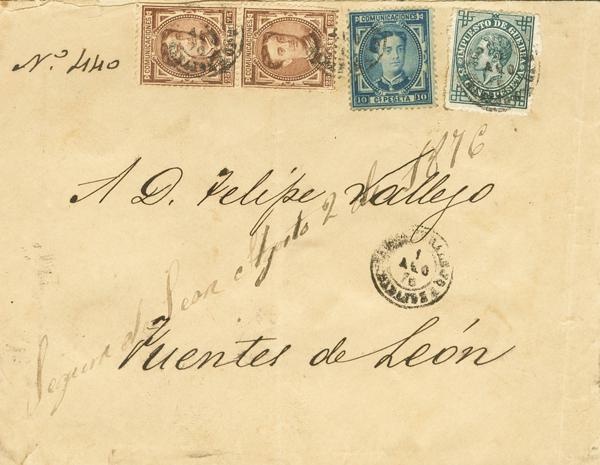 COMUNICACIONES
COMUNICACIONES
COMUNICACIONES
10 Cs PESETA 10
IMPUESTO DE GUERRA
Nº 440
A D. Felipe Vallejo
Segura de Leon Agosto 2 de 1876
1
AGO
76
Fuentes de León